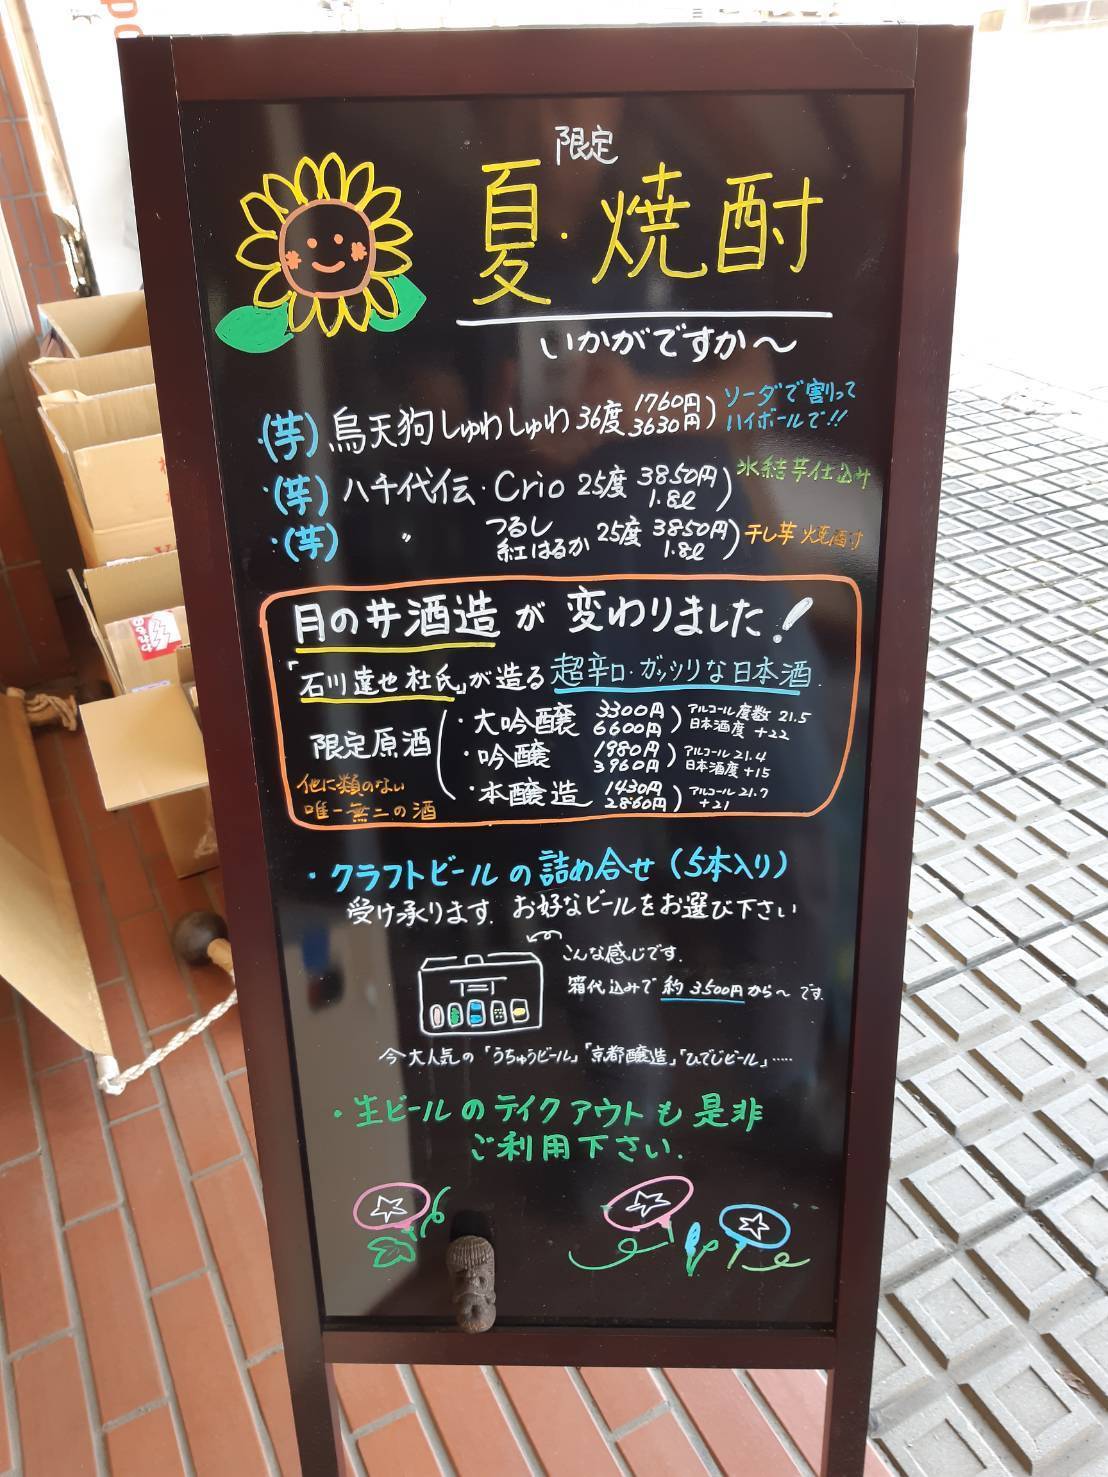 限定
夏・焼酎
いかがですか～
・(芋) 烏天狗しゅわしゅわ 36度 1760円 3630円) ソーダで割って ハイボールで!!
・(芋) 八千代伝・Crio 25度 3850円 1.8ℓ) 氷結芋仕込み
・(芋) 〃 つるし 紅はるか 25度 3850円 1.8ℓ) 干し芋焼酎
月の井酒造が変わりました!
「石川達也杜氏」が造る超辛口・ガッツリな日本酒.
限定原酒
・大吟醸 3300円 6600円) アルコール度数 21.5 日本酒度 +22
・吟醸 1980円 3960円) アルコール 21.4 日本酒度 +15
・本醸造 1430円 2860円) アルコール 21.7 +21
他に類のない
唯一無二の酒
・クラフトビールの詰め合せ(5本入り)
受け承ります. お好なビールをお選び下さい
こんな感じです.
箱代込みで約3500円から～です.
今大人気の「うちゅうビール」「京都醸造」「ひでじビール」.....
・生ビールのテイクアウトも是非
ご利用下さい.